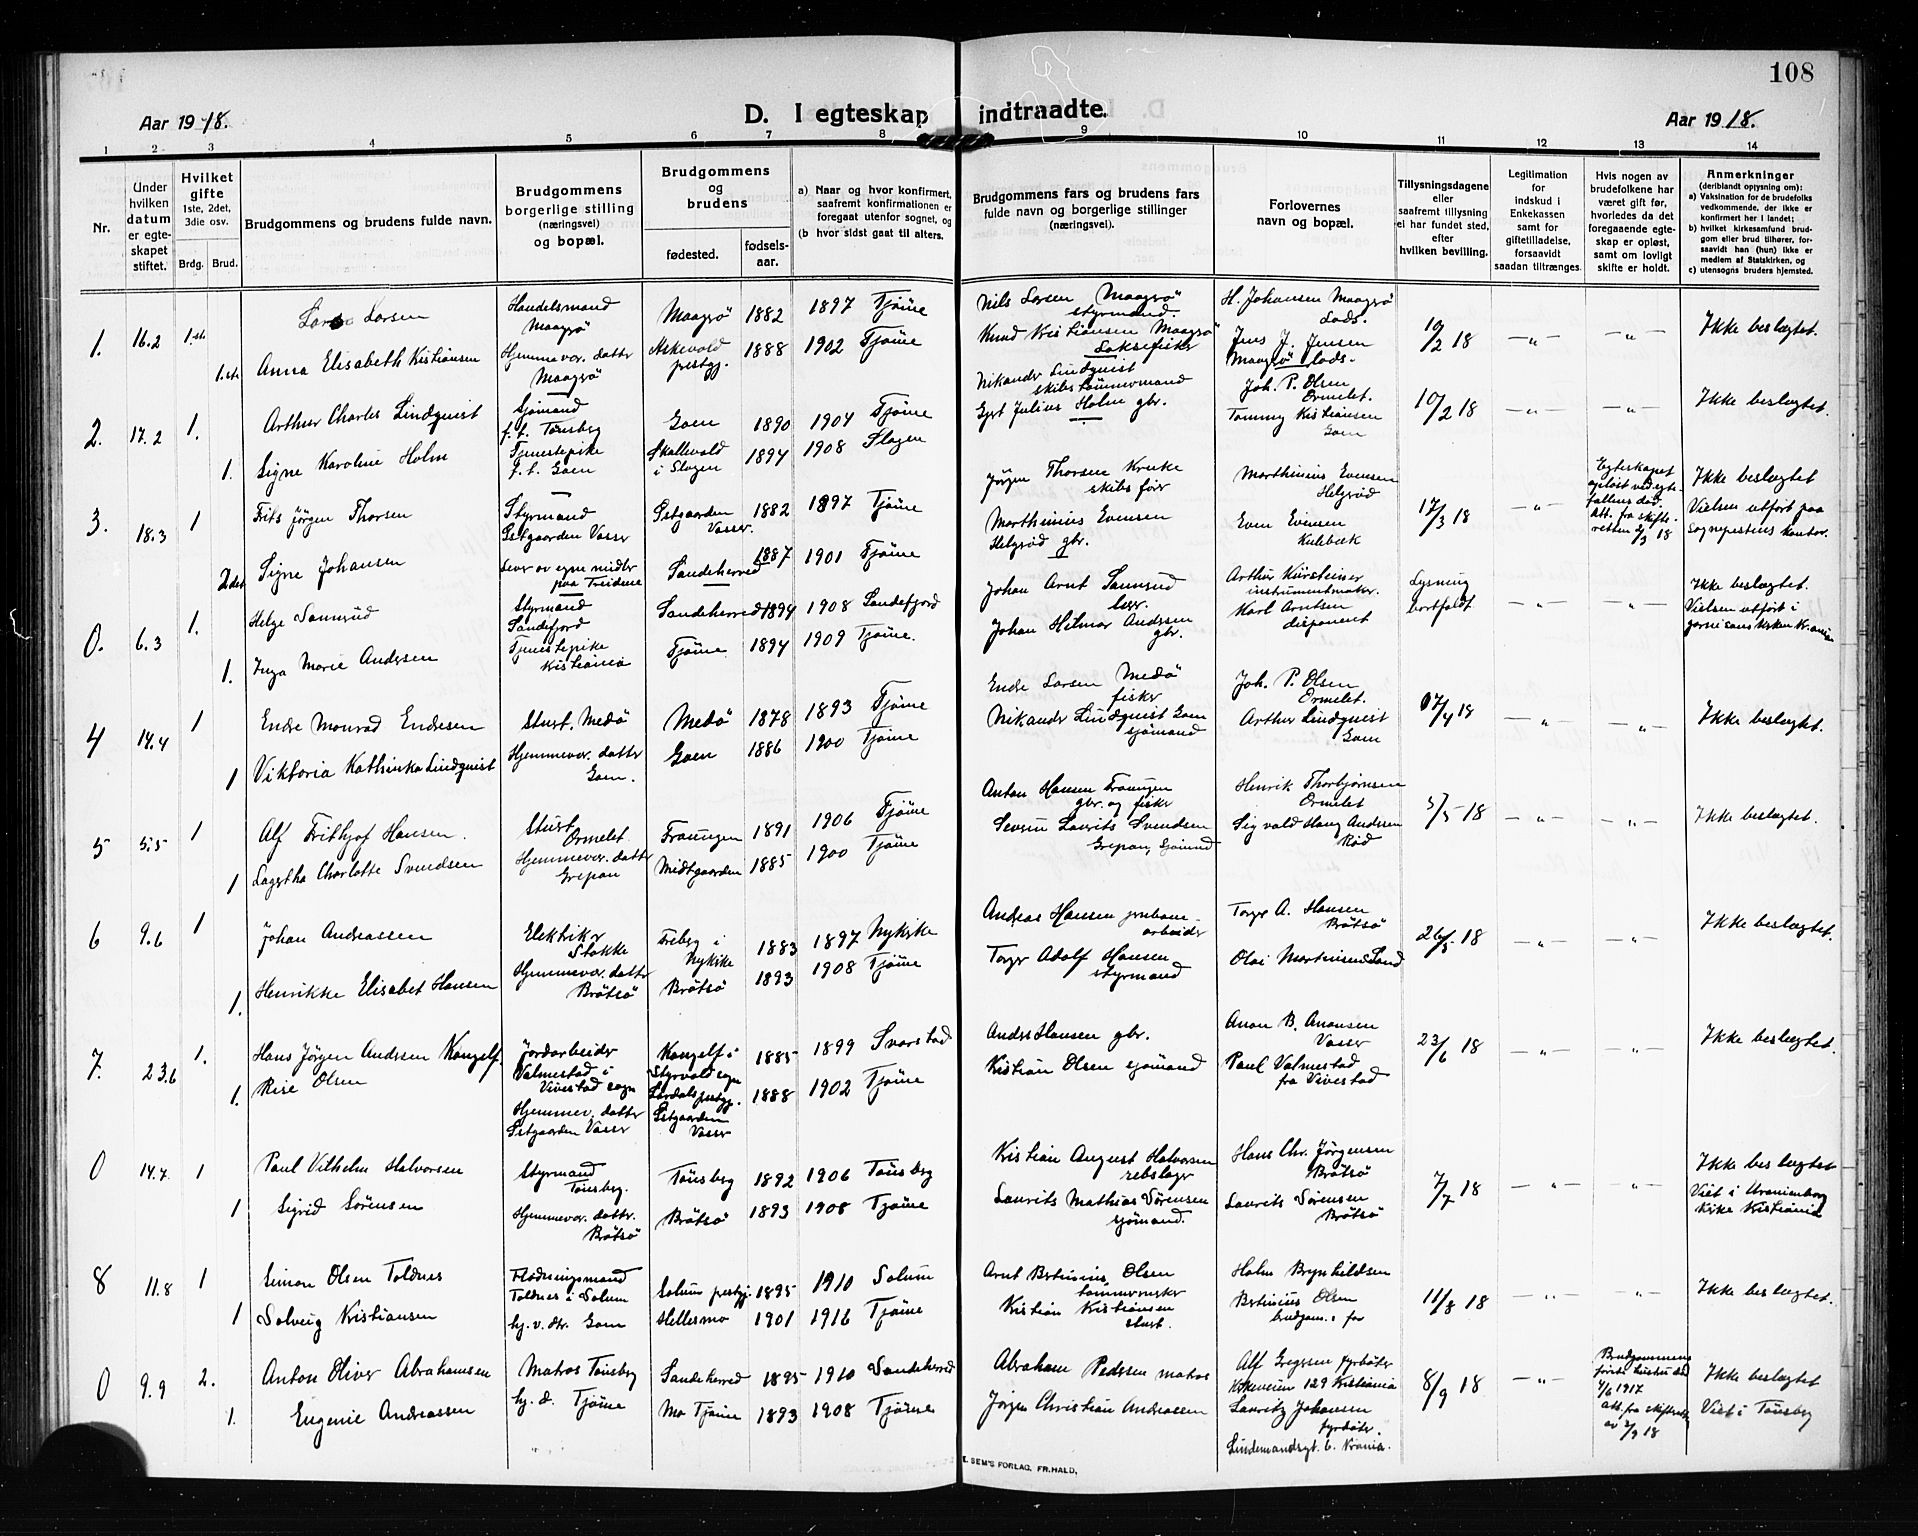 108
Aar 1918.
D. I egteskap indtraadte.
Aar 1918.
1 2 3 4 5 6 7 8 9 10 11 12 13 14
Nr.
Under hvilken datum er egteskapet stiftet.
Hvilket gifte 1ste, 2det, 3die osv.
Brdg. Brud.
Brudgommens og brudens fulde navn.
Brudgommens borgerlige stilling (næringsvei) og bopæl.
Brudgommens og brudens
fødested. fødsels-aar.
a) Naar og hvor konfirmert, saafremt konfirmationen er foregaat utenfor sognet, og
(b hvor sidst gaat til alters.
Brudgommens fars og brudens fars fulde navn og borgerlige stillinger (næringsvei).
Forlovernes navn og bopæl.
Tillysningsdagene eller saafremt tillysning ei har fundet sted, efter hvilken bevilling.
Legitimation for indskud i Enkekassen samt for giftetilladelse, forsaavidt saadan tiltrænges.
Hvis nogen av brudefolkene har været gift før, hvorledes da det foregaaende egteskap er opløst, samt om lovligt skifte er holdt.
Anmerkninger (deriblandt oplysning om):
a) Vaksination for de brudefolks vedkommende, der ikke er konfirmert her i landet;
b) hvilket kirkesamfund brudgom eller brud tilhører, forsaavidt han (hun) ikke er medlem af Statskirken, og
c) utensogns bruders hjemsted.
1. 16.2 1.st. Larsen Handelsmand Maagerø Maagerø 1882 1897 Tjøme Nils Larsen Maagerø styrmand H. Johansen Maagerø Lods. 10/2 18 — " — — " — Ikke beslegtet.
1.ste Anna Elisabeth Kristiansen Hjemmevær. datter Maagerø Askevold prestgj. 1888 1902 Tjøme Knud Kristiansen Maagerø Laksefisker Jens J. Jensen Maagerø Lods.
2. 17.2 1. Arthur Charles Lindquist Sjømand f. t. Tønsberg Goen 1890 1904 Tjøme Nikander Lindquist skibstømmermand Joh. P. Olsen Ormelet. 10/2 18 — " — — " — Ikke beslegtet.
1. Signe Karoline Holm Tjenestepike f. t. Goen Skallevold i Slagen 1894 1908 Slagen Gert Julius Holm gbr. Tommy Kristiansen Goen
3. 18.3 1 Frits Jørgen Thorsen Styrmand Østgaarden Vasser Østgaarden Vasser. 1882 1897 Tjøme Jørgen Thorsen Kruke skibsfører Marthinius Evensen Helgerød 17/3 18 — " — Egteskapet opløst ved egtefællens død. Att. fra skifteretten 2/3 18 Ikke beslegtet Vielsen utført paa Sogneprestens kontor.
2det Signe Johansen Lever av egne midler paa Treidene Sandeherred 1887 1901 Tjøme Marthinius Evensen Helgerød gbr. Even Evensen Kulebæk
0. 6.3 1. Helge Samsrud Styrmand Sandefjord Sandeherred 1894 1908 Sandefjord Johan Arnt Samsrud Arthur Kürsteiner instrumentmaker. Lysning bortfaldt — " — — " — Ikke beslegtet. Vielsen utført i garnisonskirken Kr.ania
1. Inga Marie Andersen Tjenestepike Kristiania Tjøme 1894 1909 Tjøme. Johan Hilmar Andersen gbr. Karl Arntsen disponent
4 14.4 1 Endre Monrad Endresen Stuert. Medø Medø 1878 1893 Tjøme Endre Larsen Medø fisker Joh. P. Olsen Ormelet. 07/4 18 — " — — " — Ikke beslegtet.
1 Viktoria Kathinka Lindquist Hjemmevær. datter Goen. Goen 1886 1900 Tjøme Nikander Lindquist Goen sjømand Arthur Lindquist Goen
5 5.5 1 Alf Frithjof Hansen. Stuert Ormelet Fraungen 1891 1906 Tjøme Anton Hansen Fraungen gbr. og fisker Henrik Thorbjørnsen Ormelet 5/5 18 — " — — " — Ikke beslegtet.
1 Lagertha Charlotte Svendsen Hjemmevær. datter Grepan Midtgaarden 1885 1900 Tjøme Severin Laurits Svendsen Grepan, sjømand Sigvald Hang Andersen Rød
6 9.6 1 Johan Andreassen Elektriker Stokke Freberg i Nykirke 1883 1897 Nykirke Andreas Hansen jernbanearbeider Torger A. Hansen Brøtsø 26/5 18 — " — — " — Ikke beslegtet.
1. Henrikke Elisabet Hansen Hjemmevær. datter Brøtsø Brøtsø 1893 1908 Tjøme Torger Adolf Hansen styrmand Olai Martinsen Sand
7. 23.6 1. Hans Jørgen Andersen Kongelf. Jordarbeider Valmestad i Vivestad sogn Kongelf i Styrvold sogn Lardals prestgj. 1885 1899 Svarstad Anders Hansen gbr. Anon B. Anonsen Vasser 23/6 18 — " — — " — Ikke beslegtet.
1. Rise Olsen Hjemmev. datter Østgaarden Vasser Østgaarden Vasser 1888 1902 Tjøme Kristian Olsen sjømand Paul Valmestad fra Vivestad
0 14.7. 1 Paul Vilhelm Halvorsen Styrmand Tønsberg. Tønsberg 1892 1906 Tønsberg Kristian August Halvorsen rebslager Hans Chr. Jørgensen Brøtsø 7/7 18 — " — — " — Ikke beslegtet Viet i Uranienborg kirke Kristiania
1 Sigrid Sørensen Hjemmevær. datter. Brøtsø Brøtsø 1893 1908 Tjøme Laurits Mathias Sørensen sjømand. Laurits Sørensen Brøtsø
8 11.8 1 Simon Olsen Toldnes Flødningsmand Toldnes i Solum Solum prestgj. 1895 1910 Solum Arnt Bertinius Olsen tømmermerker Holm Brynhildsen 11/8 18 — " — — " — Ikke beslegtet.
1 Solveig Kristiansen hj. v. dtr. Goen Hellesmo 1901 1916 Tjøme Kristian Kristiansen stuert. Bertinius Olsen brudgom.s far
0 9.9 2. Anton Oliver Abrahamsen Matros Tønsberg Sandeherred 1895 1910 Sandeherred Abraham Pedersen matros Alf Gregersen fyrbøter Kirkeveien 129 Kristiania 8/9 18 — " — Brudgommens første hustru død 4/6 1917 att. fra skifteretten av 2/9 18 Ikke beslegtet Viet i Tønsberg
1. Eugenie Andreassen hj. d. Tjøme Mo Tjøme 1893 1908 Tjøme Jørgen Christian Andreassen Lauritz Johansen fyrbøter. Lindemandsgt. 6. Krania.
E. SEM'S FORLAG, FR.HALD,